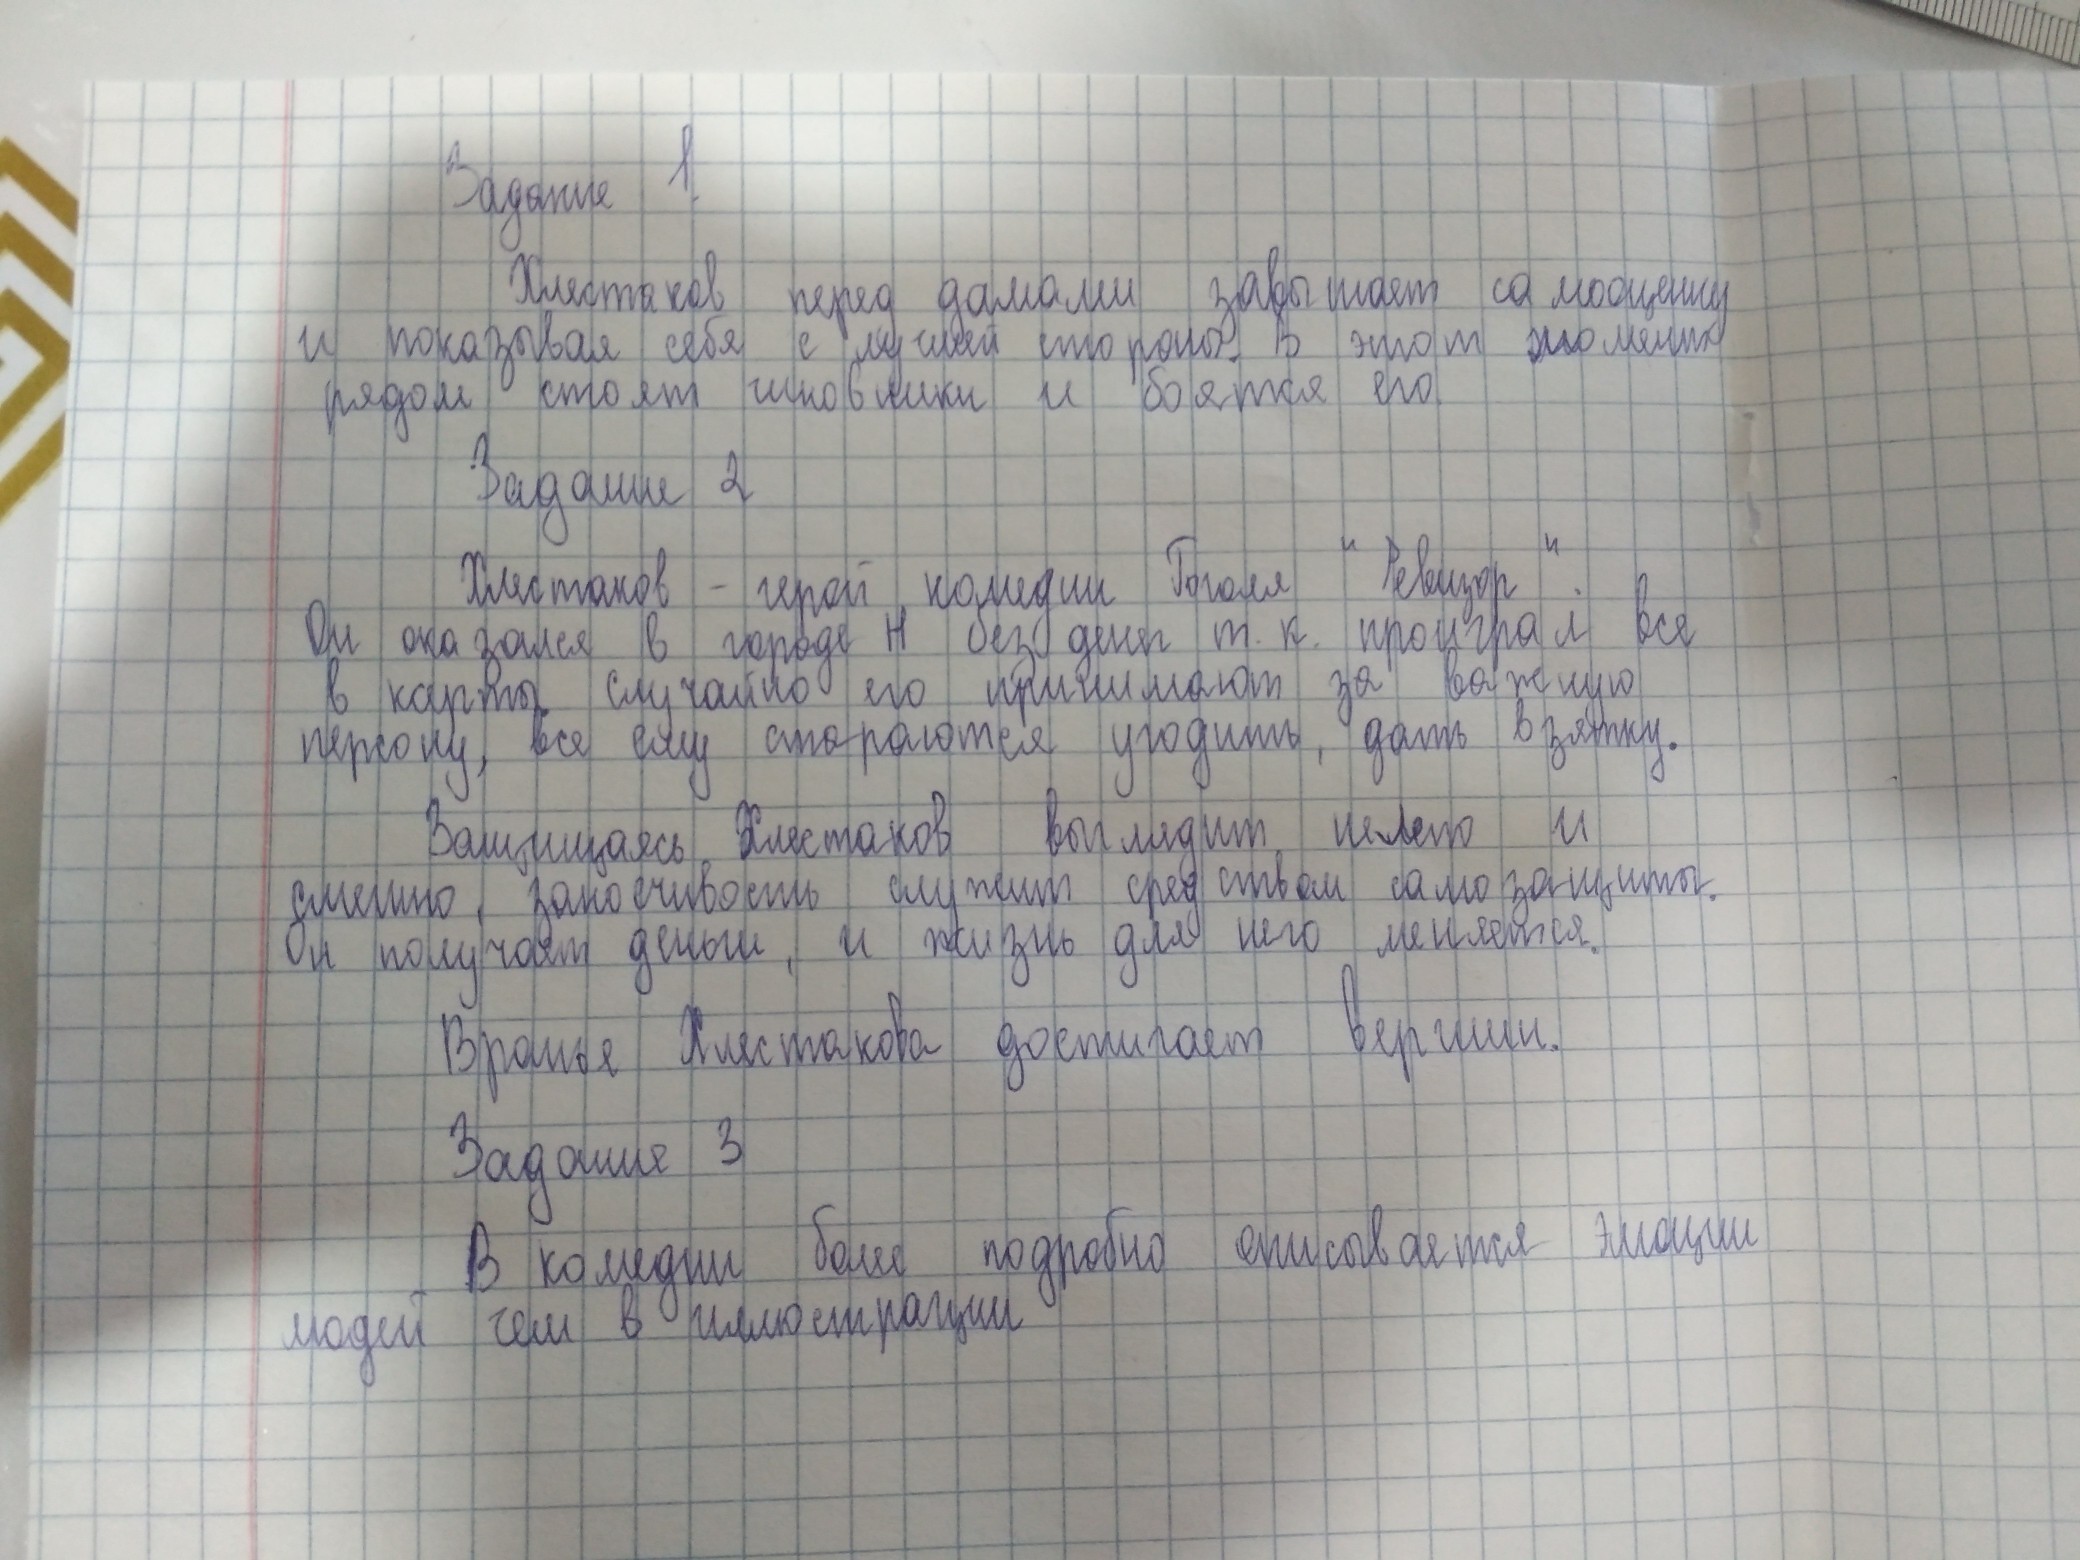 Задание 1.
Хлестаков перед дамами завышает самооценку
и показывая себя с лучшей стороны. В этот момент
рядом стоят чиновники и боятся его.
Задание 2
Хлестаков - герой комедии Гоголя "Ревизор".
Он оказался в городе Н без денег т.к. проиграл все
в карты. Случайно его принимают за важную
персону, все ему стараются угодить, дать взятку.
Защищаясь Хлестаков выглядит нелепо и
смешно, заносчивость служит средством самозащиты.
Он получает деньги, и жизнь для него меняется.
Вранье Хлестакова достигает вершин.
Задание 3
В комедии более подробно описывается эмоции
людей чем в иллюстрации